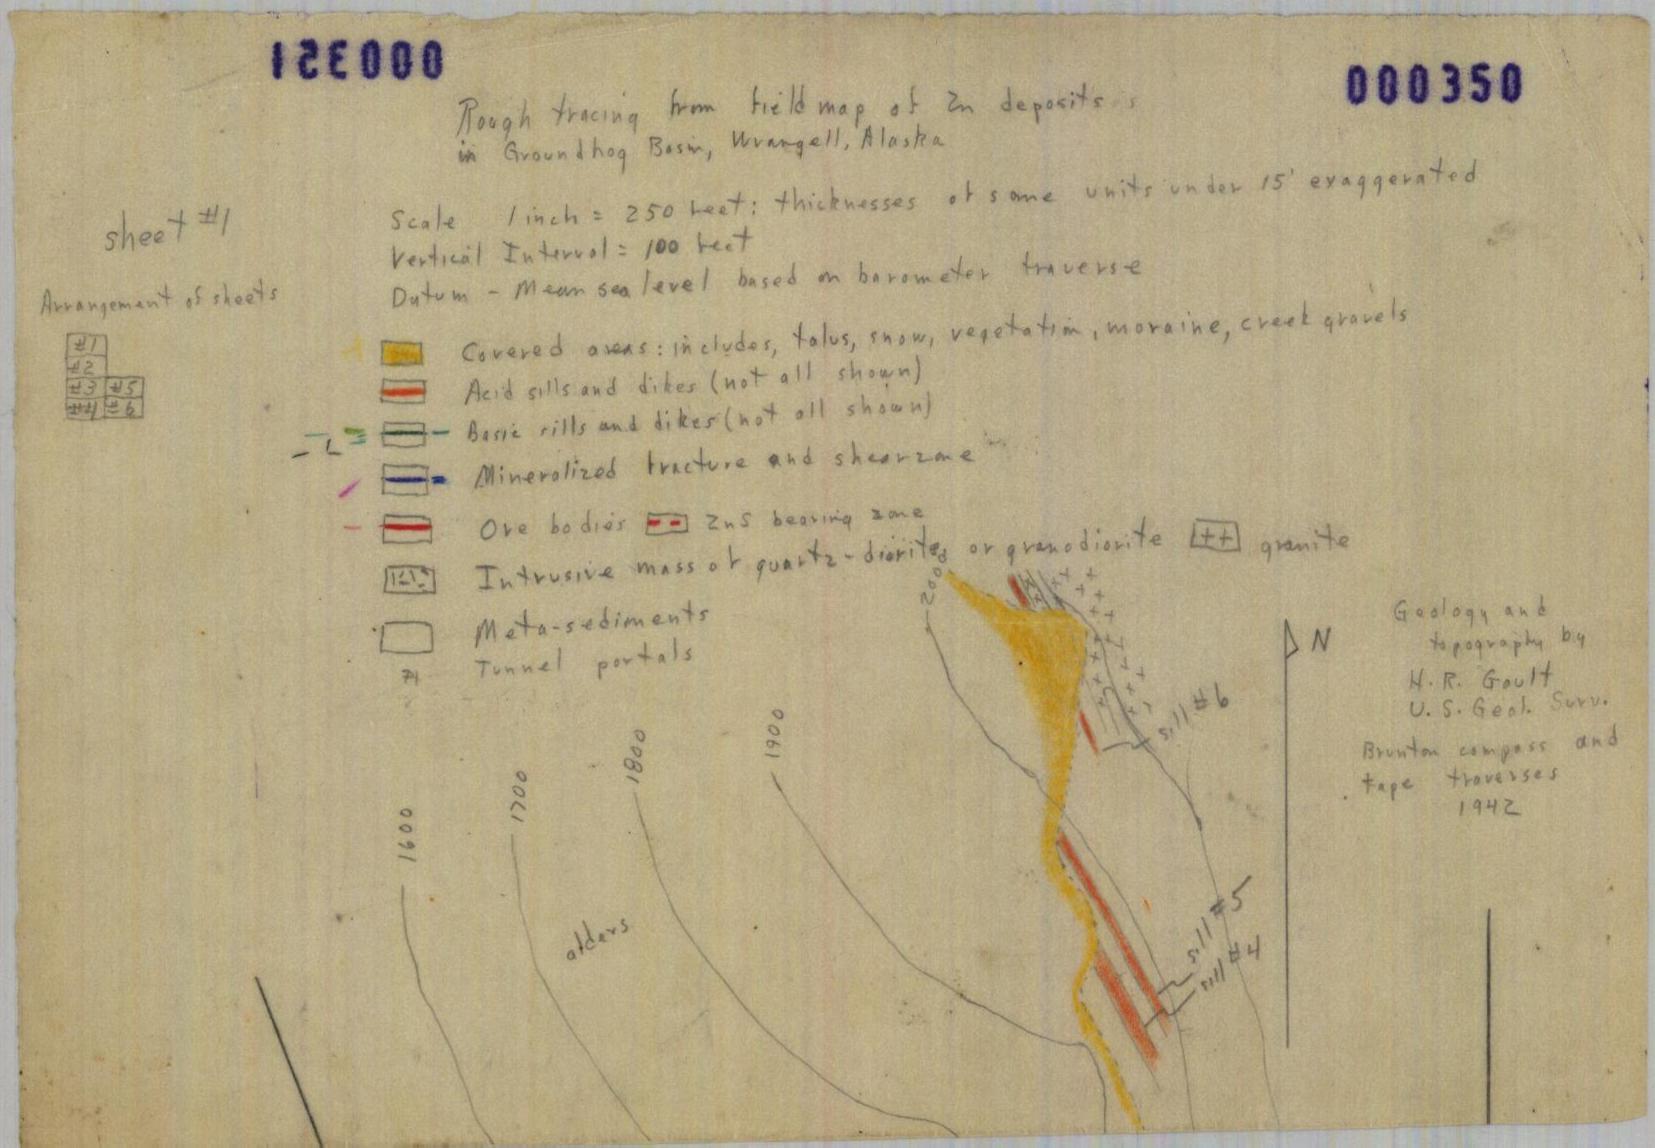 000351
000350
Rough tracing from field map of Zn deposits
in Groundhog Basin, Wrangell, Alaska
sheet #1
Scale 1 inch = 250 feet: thicknesses of some units under 15' exaggerated
Vertical Interval = 100 feet
Datum - Mean sea level based on barometer traverse
Arrangement of sheets
#1
#2
#3 #5
#4 #6
Covered areas: includes, talus, snow, vegetation, moraine, creek gravels
Acid sills and dikes (not all shown)
Basic sills and dikes (not all shown)
Mineralized fracture and shear zone
Ore bodies ZnS bearing zone
Intrusive mass of quartz-diorite or granodiorite ++ granite
Meta-sediments
Tunnel portals
2000
N
Geology and
topography by
H. R. Gault
U. S. Geol. Surv.
Brunton compass and
tape traverses
1942
sill #6
1900
1800
1700
1600
alders
sill #5
sill #4